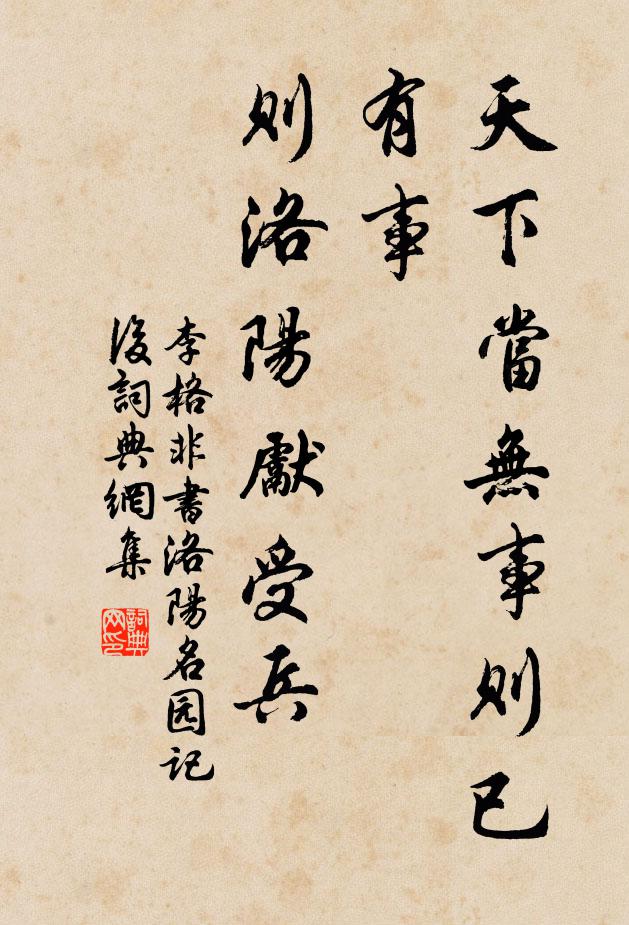 天下當無事則已
有事
則洛陽獻受兵
李格非書洛陽名园記
後詞典網集
詞典
网印